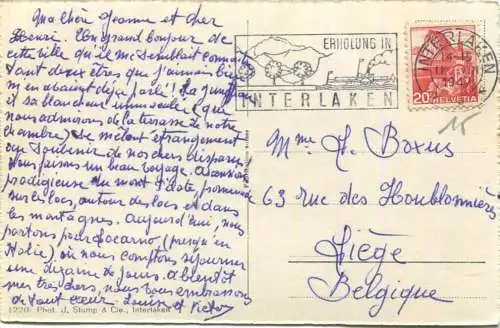 Ma chère Jeanne et cher
Henri. Un grand bonjour de
cette ville qu'il me semblait connaître
tant deux êtres que j'aimais bien
m'en avaient déjà parlé! La Jungfrau
et sa blancheur immaculée que
nous admirons de la terrasse de notre
chambre, se mêlent étrangement
au souvenir de nos chers disparus.
Nous faisons un beau voyage. Ascension
prodigieuse du mont, promenade
sur les lacs, autour des lacs et dans
les montagnes. Aujourd'hui, nous
partons pour Locarno (presqu'en
Italie) où nous comptons séjourner
une dizaine de jours. A bientôt
mes très chers, nous vous embrassons
de tout cœur. Louise et Victor
1220 Phot. J. Stump & Cie., Interlaken
ERHOLUNG IN
INTERLAKEN
INTERLAKEN
20 HELVETIA
15
Mme H. Boxus
63 rue des Houblonnières
Liège
Belgique